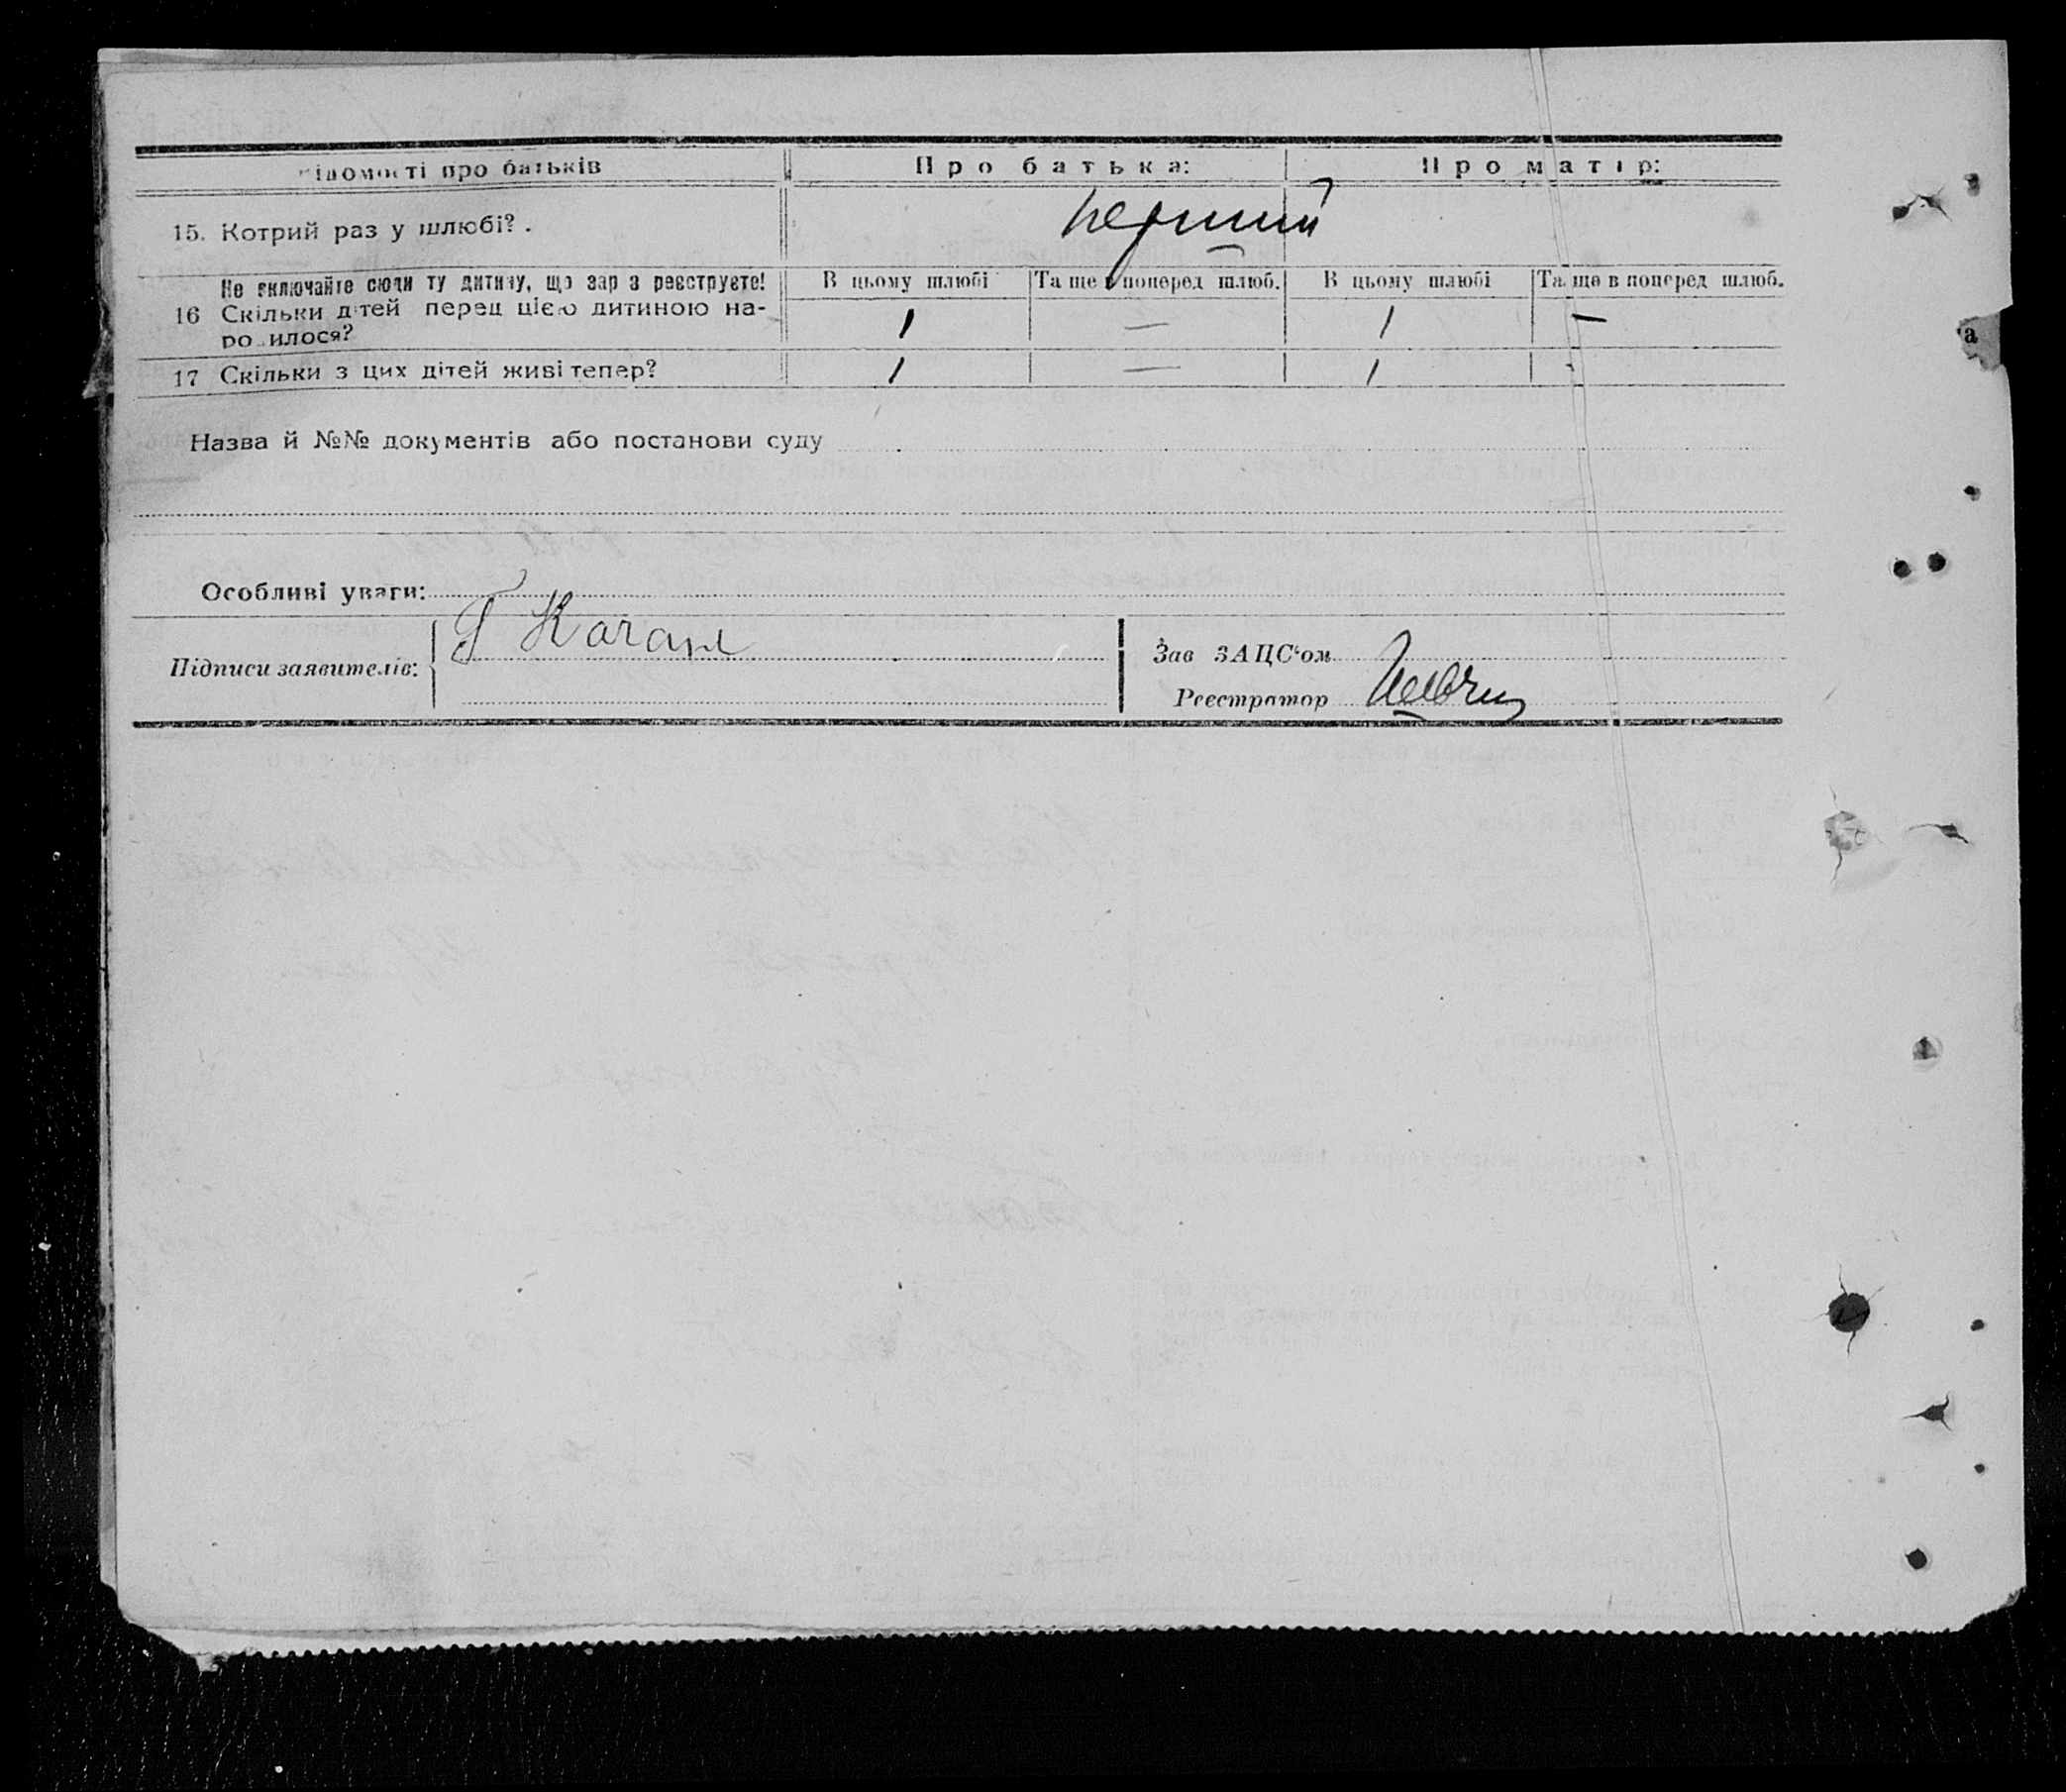 Відомості про батьків Про батька: Про матір:
15. Котрий раз у шлюбі? . перший
Не включайте сюди ту дитину, що зараз реєструєте! В цьому шлюбі Та ще в поперед шлюб. В цьому шлюбі Та ще в поперед шлюб.
16 Скільки дітей перед цією дитиною на- 1 — 1 —
родилося?
17 Скільки з цих дітей живі тепер? 1 — 1 -
Назва й №№ документів або постанови суду
Особливі уваги:
Підписи заявителів: Качан
Зав ЗАЦС‘ом
Реєстратор
а